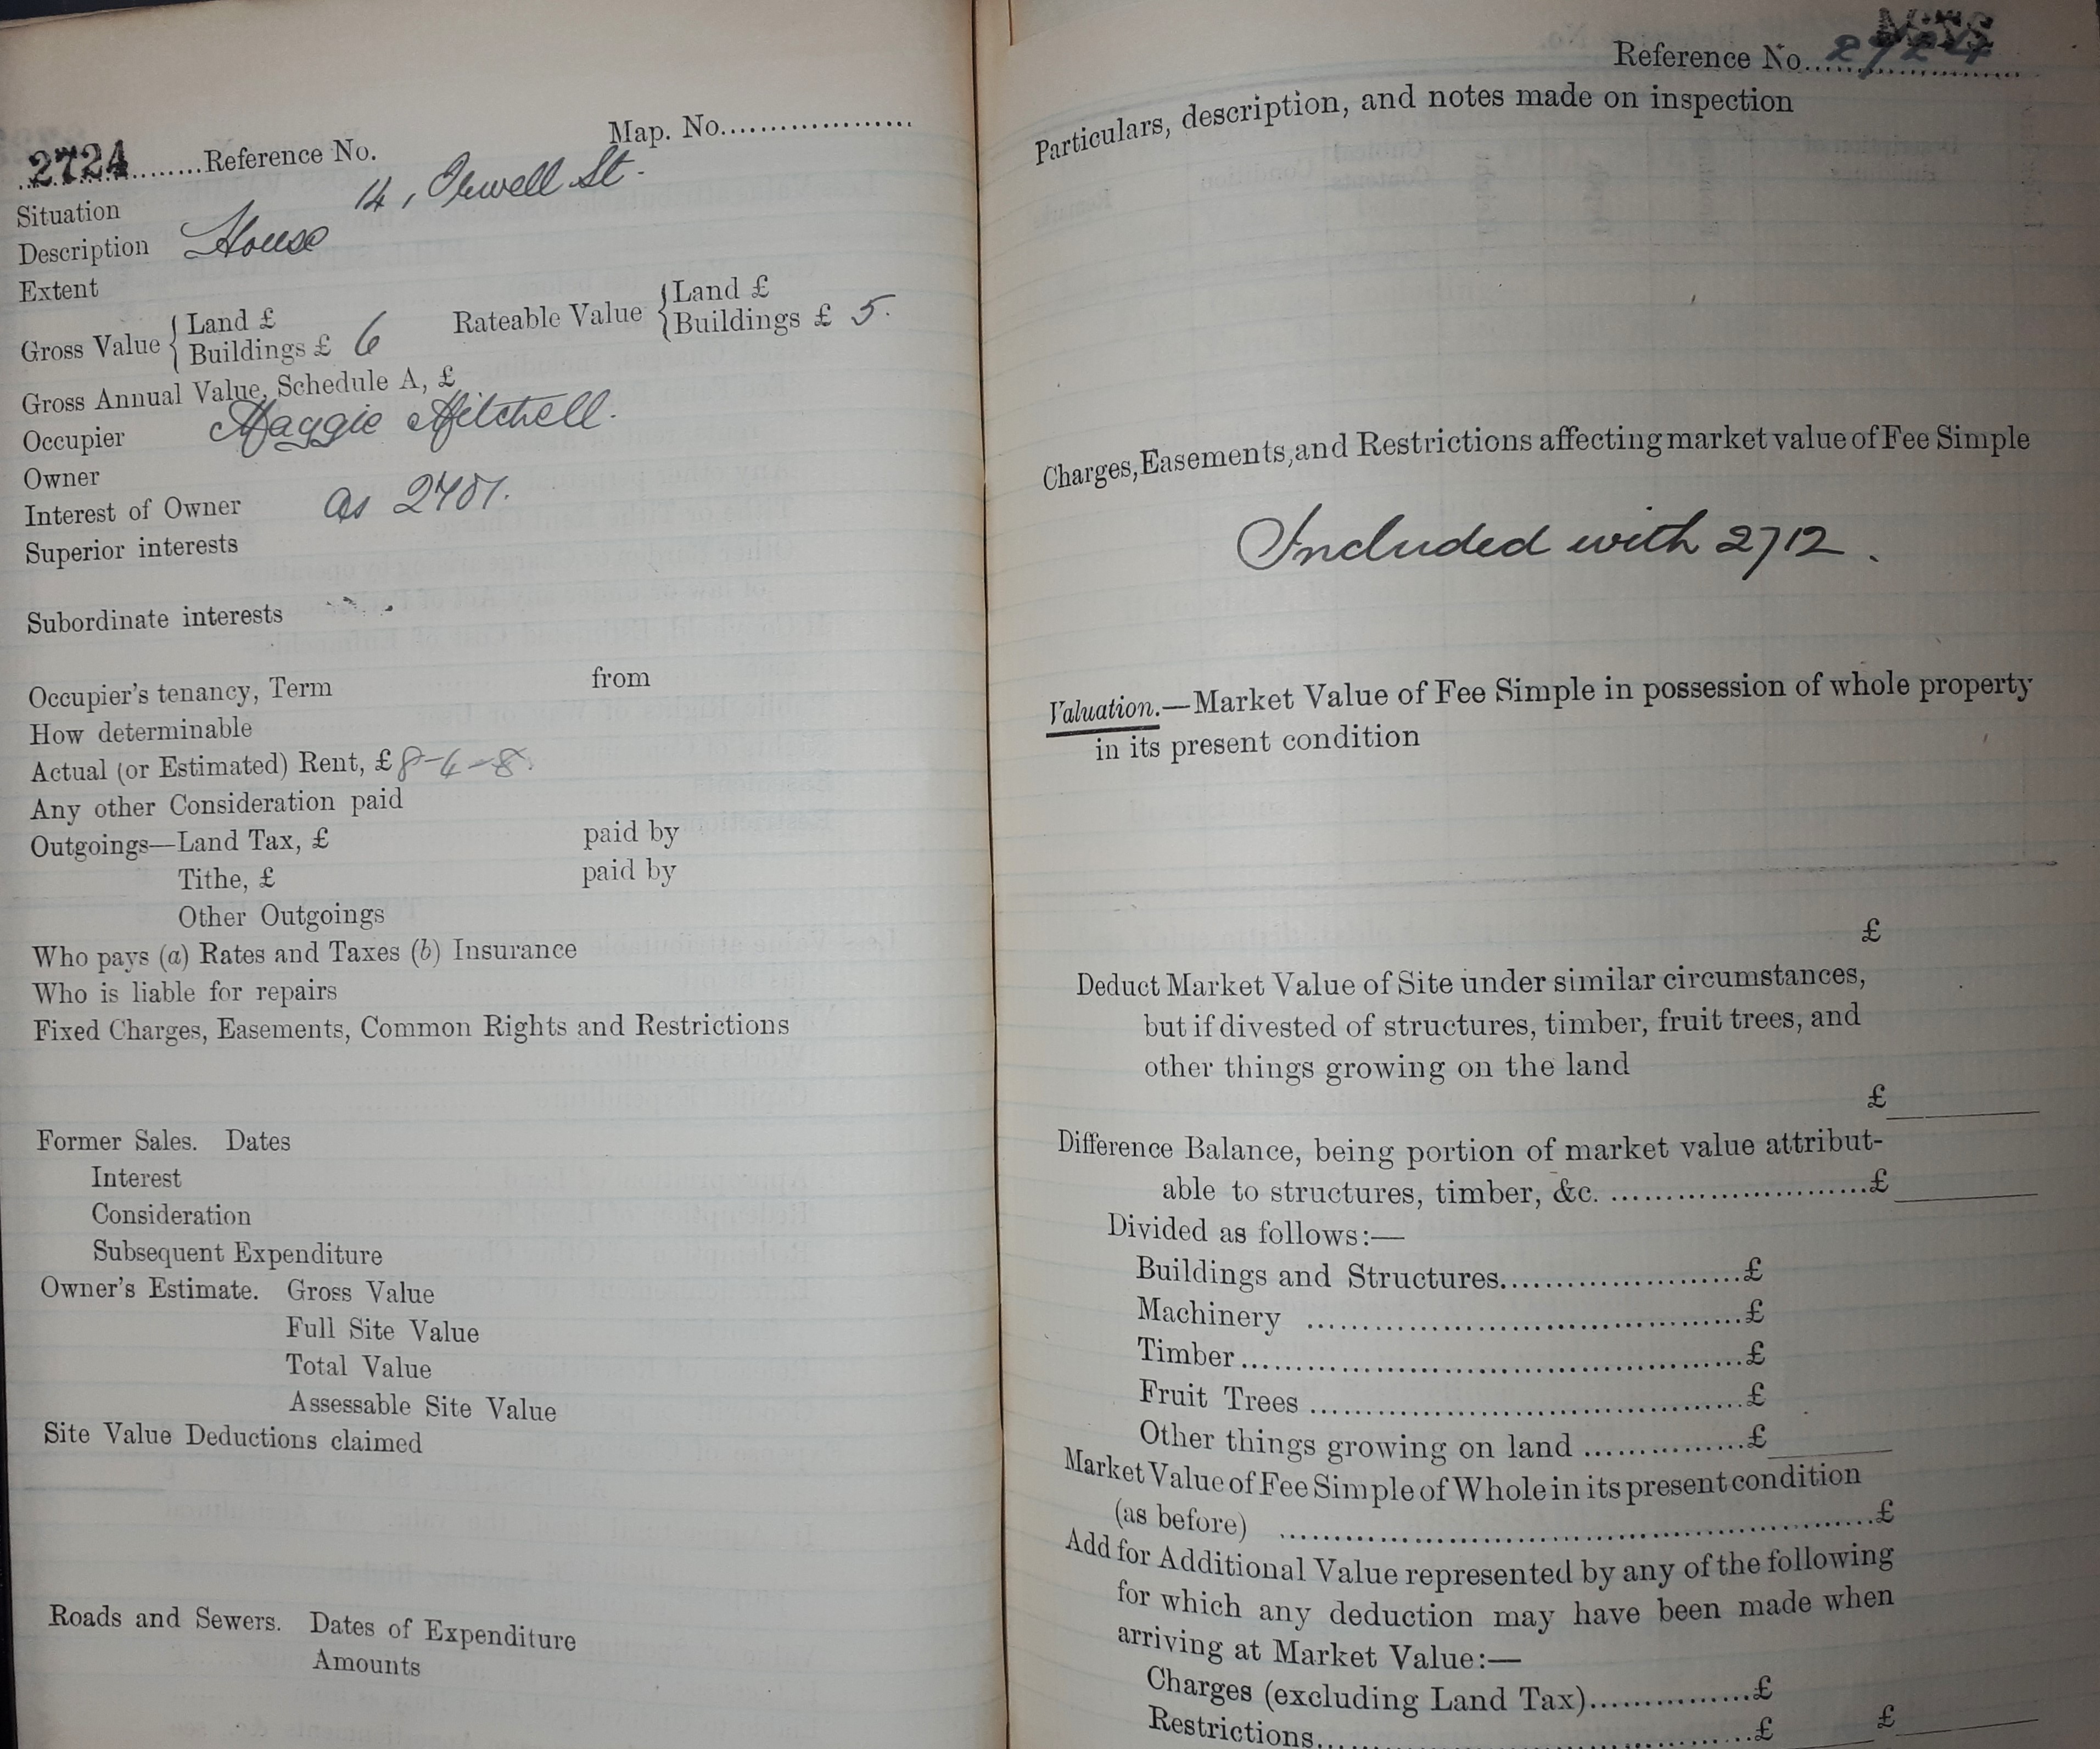 Map. No...................
2724 Reference No.
Situation 14, Orwell St.
Description House
Extent
Gross Value { Land £
Buildings £ 6
Rateable Value { Land £
Buildings £ 5.
Gross Annual Value, Schedule A, £
Occupier Maggie Mitchell.
Owner
Interest of Owner as 2701.
Superior interests
Subordinate interests
Occupier's tenancy, Term from
How determinable
Actual (or Estimated) Rent, £ 8-4-8.
Any other Consideration paid
Outgoings—Land Tax, £ paid by
Tithe, £ paid by
Other Outgoings
Who pays (a) Rates and Taxes (b) Insurance
Who is liable for repairs
Fixed Charges, Easements, Common Rights and Restrictions
Former Sales. Dates
Interest
Consideration
Subsequent Expenditure
Owner's Estimate. Gross Value
Full Site Value
Total Value
Assessable Site Value
Site Value Deductions claimed
Roads and Sewers. Dates of Expenditure
Amounts
Reference No. 2724
Particulars, description, and notes made on inspection
Charges, Easements, and Restrictions affecting market value of Fee Simple
Included with 2712.
Valuation.—Market Value of Fee Simple in possession of whole property
in its present condition
£
Deduct Market Value of Site under similar circumstances,
but if divested of structures, timber, fruit trees, and
other things growing on the land
£
Difference Balance, being portion of market value attribut-
able to structures, timber, &c. ..........................£
Divided as follows:—
Buildings and Structures........................£
Machinery ...........................................£
Timber.................................................£
Fruit Trees ..........................................£
Other things growing on land ................£
Market Value of Fee Simple of Whole in its present condition
(as before) ............................................................£
Add for Additional Value represented by any of the following
for which any deduction may have been made when
arriving at Market Value:—
Charges (excluding Land Tax)................£
Restrictions............................................£ £